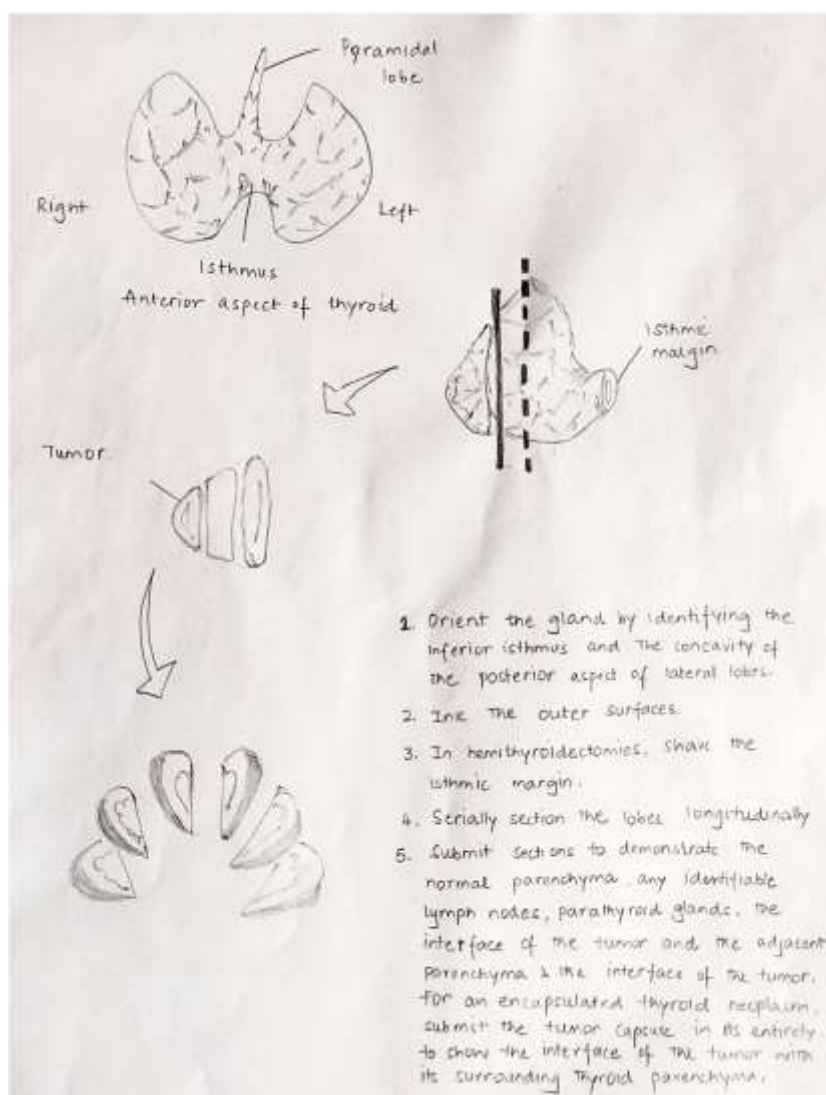 Pyramidal
lobe
Right
Left
Isthmus
Anterior aspect of thyroid
Isthmic
margin
Tumor
1. Orient the gland by identifying the
inferior isthmus and the concavity of
the posterior aspect of lateral lobes.
2. Ink the outer surfaces.
3. In hemithyroidectomies, shave the
isthmic margin.
4. Serially section the lobes longitudinally
5. Submit sections to demonstrate the
normal parenchyma, any identifiable
lymph nodes, parathyroid glands, the
interface of the tumor and the adjacent
parenchyma & the interface of the tumor.
For an encapsulated thyroid neoplasm,
submit the tumor capsule in its entirely
to show the interface of the tumor with
its surrounding thyroid parenchyma.